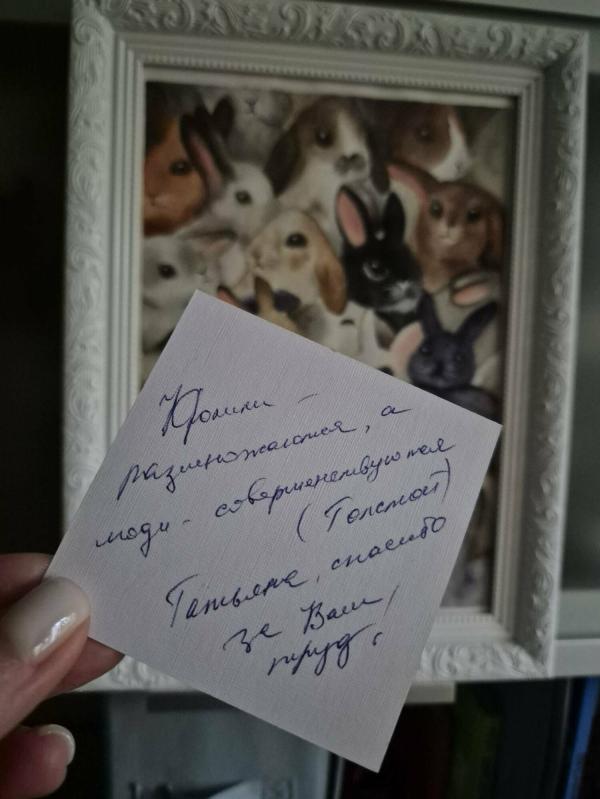 Кролики -
размножаются, а
люди - совершенствуются
(Толстой)
Татьяна, спасибо
за Ваш
труд!